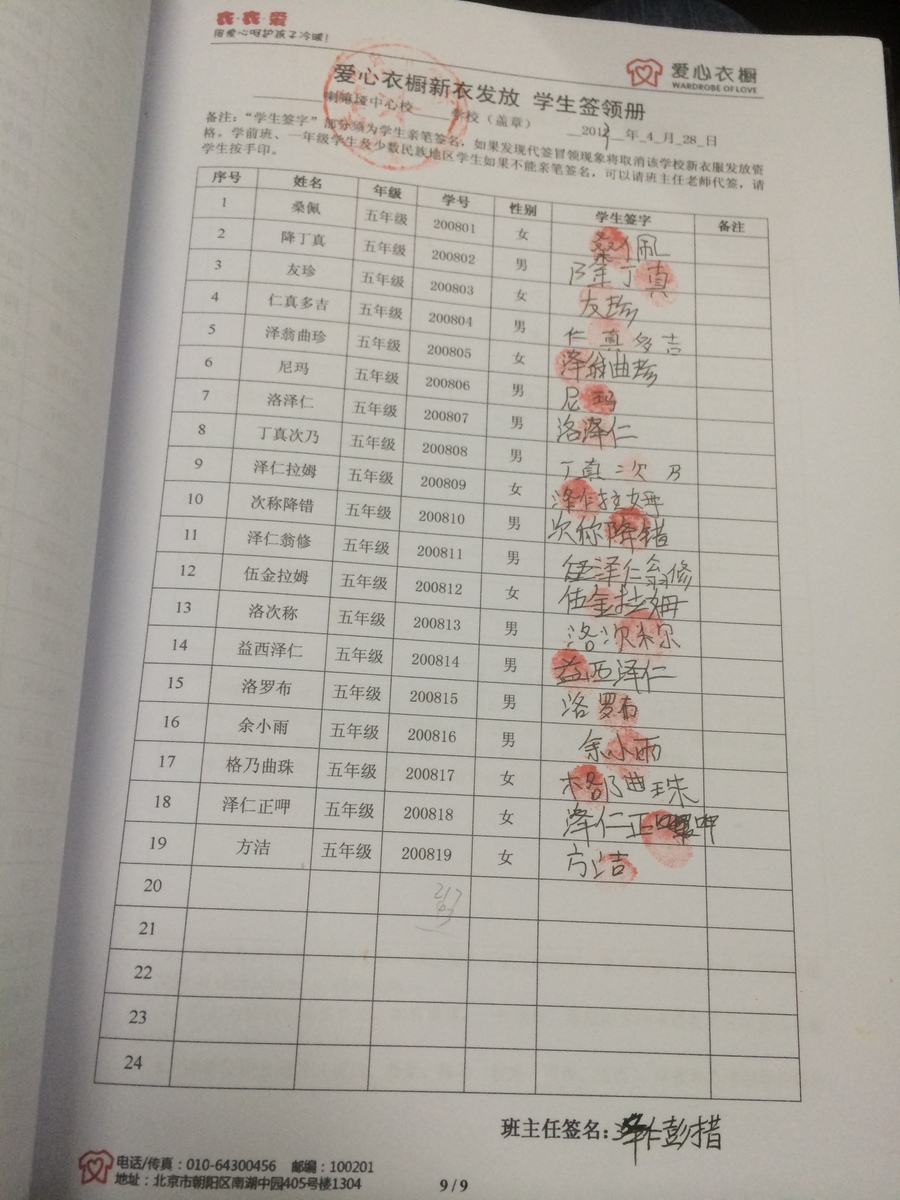 衣·衣·爱
用爱心呵护孩子冷暖!
爱心衣橱
WARDROBE OF LOVE
爱心衣橱新衣发放 学生签领册
中心校 学校（盖章） 201 年_4_月_28_日
备注：“学生签字”部分须为学生亲笔签名，如果发现代签冒领现象将取消该学校新衣服发放资
格。学前班、一年级学生及少数民族地区学生如果不能亲笔签名，可以请班主任老师代签，请
学生按手印。
序号 姓名 年级 学号 性别 学生签字 备注
1 桑佩 五年级 200801 女 桑佩
2 降丁真 五年级 200802 男 降丁真
3 友珍 五年级 200803 女 友珍
4 仁真多吉 五年级 200804 男 仁真多吉
5 泽翁曲珍 五年级 200805 女 泽翁曲珍
6 尼玛 五年级 200806 男 尼玛
7 洛泽仁 五年级 200807 男 洛泽仁
8 丁真次乃 五年级 200808 男 丁真次乃
9 泽仁拉姆 五年级 200809 女 泽仁拉姆
10 次称降错 五年级 200810 男 次称降错
11 泽仁翁修 五年级 200811 男 泽仁翁修
12 伍金拉姆 五年级 200812 女 伍金拉姆
13 洛次称 五年级 200813 男 洛次称
14 益西泽仁 五年级 200814 男 益西泽仁
15 洛罗布 五年级 200815 男 洛罗布
16 余小雨 五年级 200816 男 余小雨
17 格乃曲珠 五年级 200817 女 格乃曲珠
18 泽仁正呷 五年级 200818 女 泽仁正呷
19 方洁 五年级 200819 女 方洁
20
21
22
23
24
班主任签名：泽仁彭措
电话/传真：010-64300456 邮编：100201
地址：北京市朝阳区南湖中园405号楼1304
9 / 9